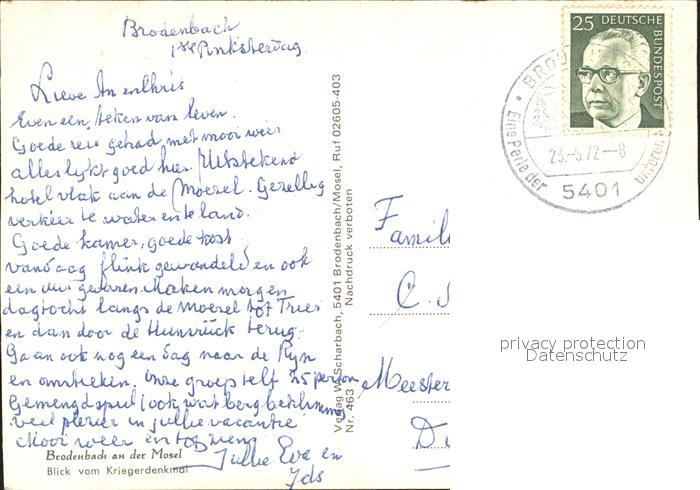 Brodenbach
1ste Pinksterdag
Lieve An en Chris
Even een teken van leven.
Goede reis gehad met mooi weer
alles lijkt goed hier. Uitstekend
hotel vlak aan de Moezel. Gezellig
verkeer te water en te land.
Goede kamer, goede kost.
vandaag flink gewandeld en ook
een uur gevaren. Maken morgen
dagtocht langs de Moezel tot Trier
en dan door de Hunsrück terug.
Gaan ook nog een dag naar de Rijn
en omstreken. Onze groep telt 25 person
Gemengd spul (ook wat bergbeklimming
veel plezier in jullie vacantie
Mooi weer en tot ziens
Jullie Eva en
Ids
Brodenbach an der Mosel
Blick vom Kriegerdenkmal
Verlag W. Scharbach, 5401 Brodenbach/Mosel, Ruf 02605-403
Nr. 463 Nachdruck verboten
25 DEUTSCHE
BUNDESPOST
Eine Perle der
23.-5.72--8
5401
Famil
C.
Meester
privacy protection
Datenschutz